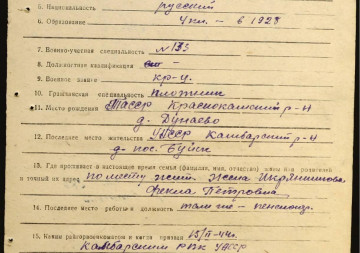 5. Национальность русский
6. Образование 4 кл. - в 1928
7. Военно-учетная специальность №133
8. Должностная квалификация
9. Военное звание кр-ц.
10. Гражданская специальность плотник
11. Место рождения ТАССР Краснокамский р-н
д. Дунаево
12. Последнее место жительства УАССР Камбарский р-н
пос. Буйск
13. Где проживает в настоящее время семья (фамилия, имя, отчество) жены или родителей
и точный их адрес по месту жит. Жена Икрянникова
Фекла Петровна
14. Последнее место работы и должность там же - пенсионер.
15. Каким райвоенкоматом и когда призван 15/II-44г.
Камбарским РВК УАССР